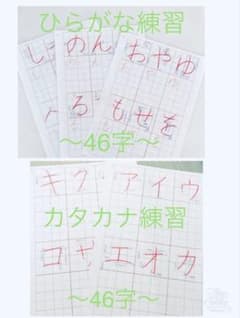 ひらがな練習
し
のん
おやゆ
へ
る
もせを
〜46字〜
キク
アイウ
カタカナ練習
コサ
エオカ
〜46字〜